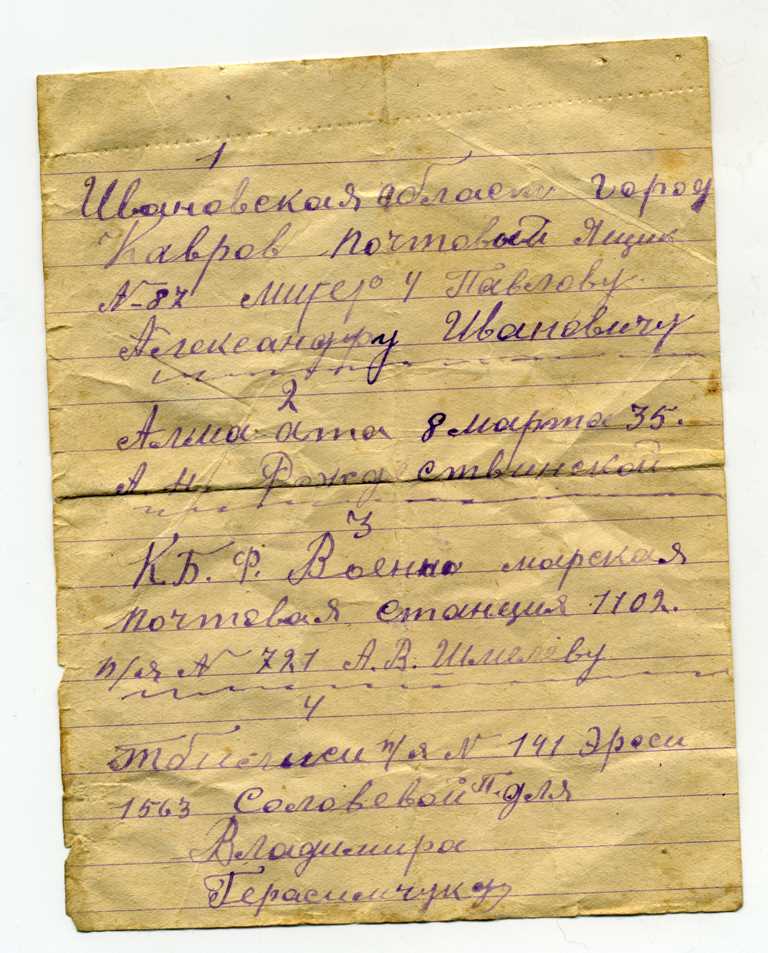 1
Ивановская область город
Кавров почтовый ящик
№-87 литер 4 Павлову
Александру Ивановичу
2
Алма ата 8 марта 35.
А. Н. Рождествинской
3
К.Б.Ф. Военно марская
почтовая станция 1102.
п/я № 721 А.В. Шмелёву
4
Тбилиси п/я № 141
1563 Соловевой П. для
Владимира
Герасимчука